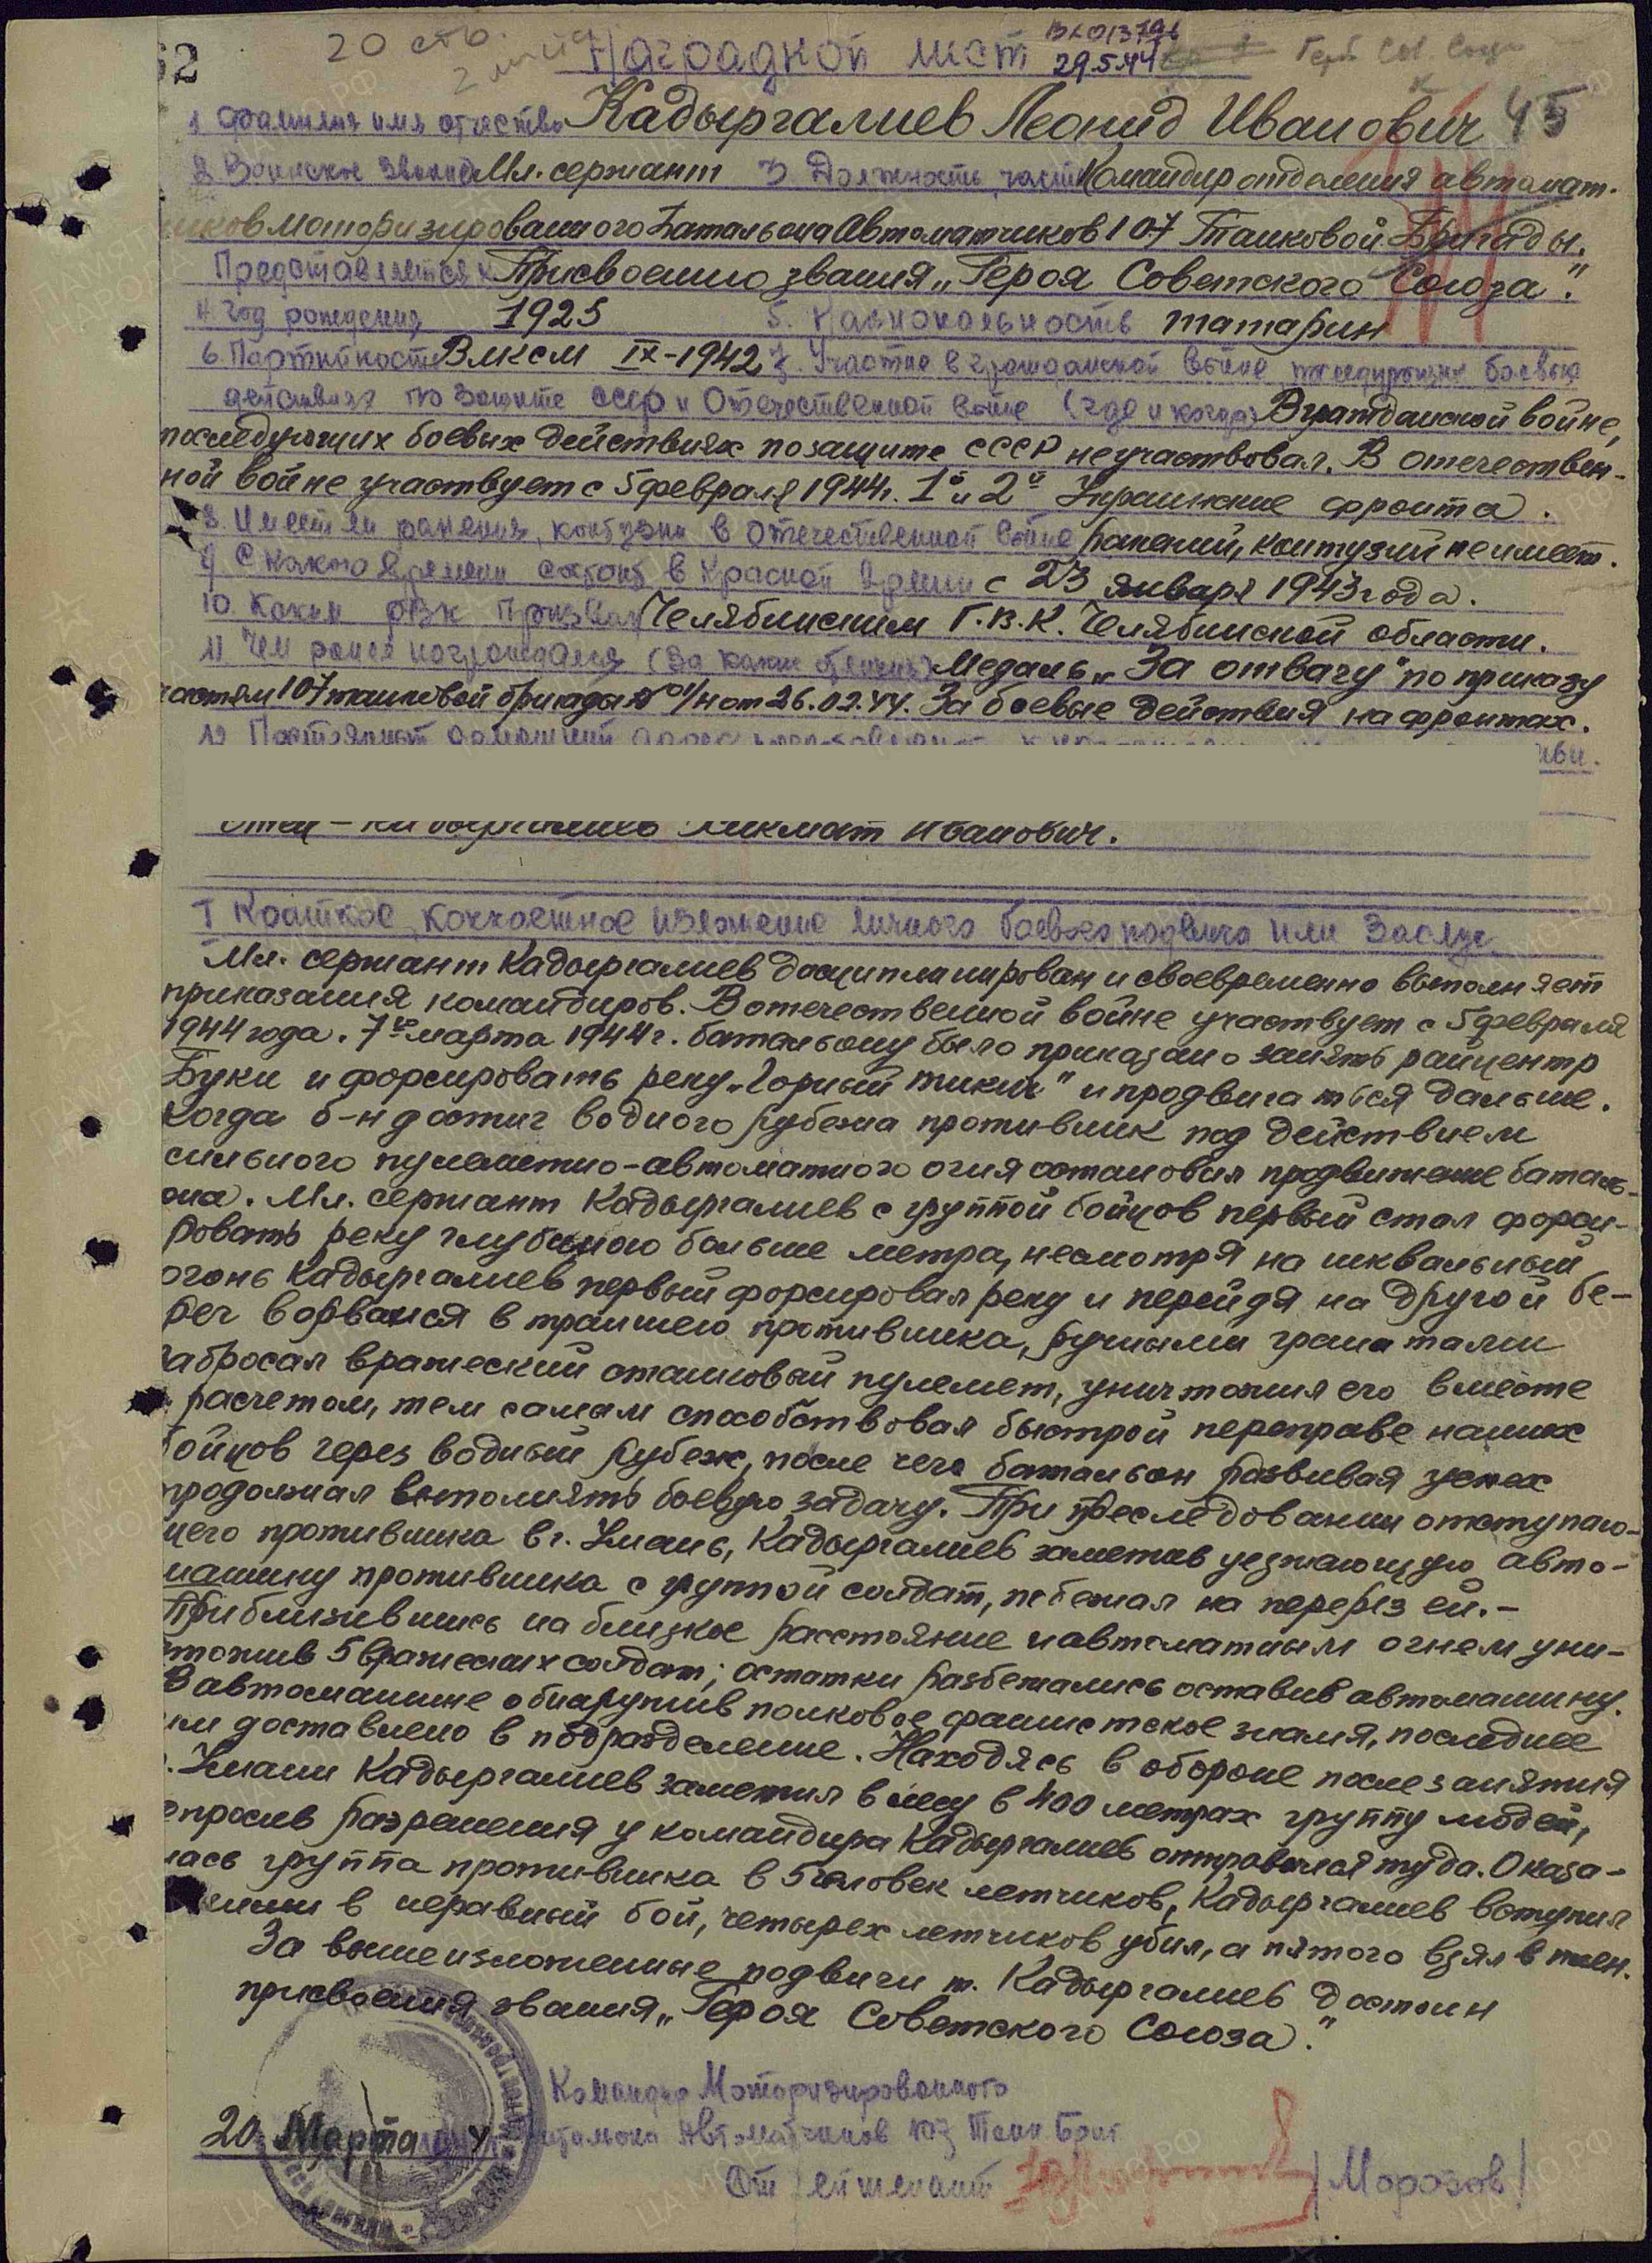 62
20 экз.
Наградной лист
29.5.44
45
1 Фамилия имя отчество Кадыргалиев Леонид Иванович
2 Воинское звание Мл. сержант 3 Должность, часть Командир отделения автомат-
чиков моторизированного Батальона Автоматчиков 107 Танковой Бригады.
Представляется к Присвоению звания „Героя Советского Союза".
4. Год рождения 1925 5. Национальность татарин
6. Партийность ВЛКСМ IX-1942 7. Участие в гражданской войне, последующих боевых
действиях по защите СССР и Отечественной войне (где и когда) В гражданской войне,
последующих боевых действиях по защите СССР не участвовал. В отечествен-
ной войне участвует с 5 февраля 1944г. 1й и 2й Украинские фронта.
8. Имеет ли ранения, контузии в Отечественной войне ранений, контузий не имеет.
9. С какого времени состоит в Красной Армии с 23 января 1943 года.
10. Каким РВК Призван Челябинским Г.В.К. Челябинской области.
11 Чем ранее награжден (за какие отличия) Медаль „За отвагу" по приказу
частям 107 танковой бригады № 01/н от 26.02.44. За боевые действия на фронтах.
12 Постоянный домашний адрес
Отец - Кадыргалиев Хикмат Иванович.
I Краткое, конкретное изложение личного боевого подвига или заслуг
Мл. сержант Кадыргалиев дисциплинирован и своевременно выполняет
приказания командиров. В отечественной войне участвует с 5 февраля
1944 года. 7го марта 1944г. батальону было приказано занять райцентр
Буки и форсировать реку „Горный тикич" и продвигаться дальше.
Когда б-н достиг водного рубежа противник под действием
сильного пулеметно-автоматного огня остановил продвижение баталь-
она. Мл. сержант Кадыргалиев с группой бойцов первый стал форси-
ровать реку глубиною больше метра, несмотря на шквальный
огонь Кадыргалиев первый форсировал реку и перейдя на другой бе-
рег ворвался в траншею противника, ручными гранатами
забросал вражеский станковый пулемет, уничтожил его вместе
с расчетом, тем самым способствовал быстрой переправе наших
бойцов через водный рубеж, после чего батальон развивая успех
продолжал выполнять боевую задачу. При преследовании отступаю-
щего противника в г. Умань, Кадыргалиев заметив уезжающую авто-
машину противника с группой солдат, побежал на перерез ей.-
Приблизившись на близкое расстояние и автоматным огнем уни-
чтожив 5 вражеских солдат; остатки разбежались оставив автомашину.
В автомашине обнаружив полковое фашистское знамя, последнее
им доставлено в подразделение. Находясь в обороне после занятия
г. Умани Кадыргалиев заметил в лесу в 400 метрах группу людей,
спросив разрешения у командира Кадыргалиев отправился туда. Оказа-
лась группа противника в 5 человек летчиков, Кадыргалиев вступил
с ними в неравный бой, четырех летчиков убил, а пятого взял в плен.
За вышеизложенные подвиги т. Кадыргалиев достоин
присвоения звания „Героя Советского Союза".
Командир Моторизированного
Батальона Автоматчиков 107 Танк Бриг
20 Марта 44
Ст лейтенант /Морозов/